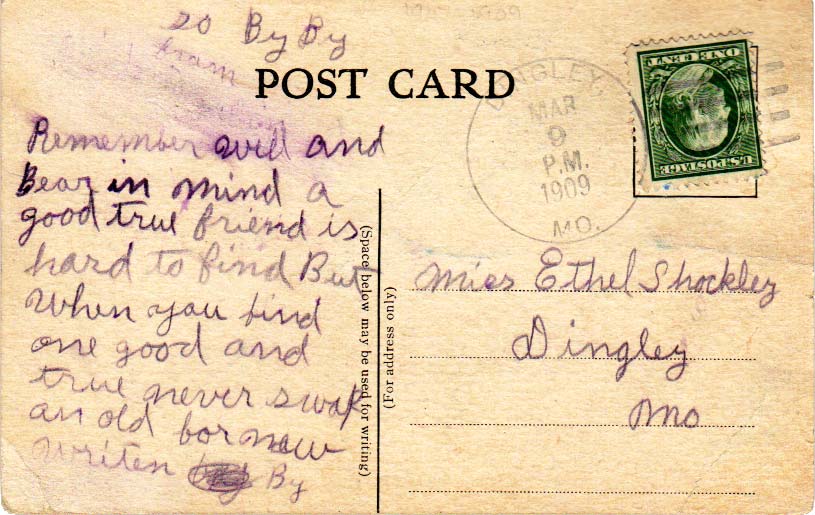 so By By
from
POST CARD
DINGLEY,
MAR
9
P.M.
1909
MO.
ONE CENT
U.S. POSTAGE
Remember will and
Bear in mind a
good true friend is
hard to find But
when you find
one good and
true never swap
an old for new
writen By
(Space below may be used for writing)
(For address only)
Miss Ethel Shockley
Dingley
Mo